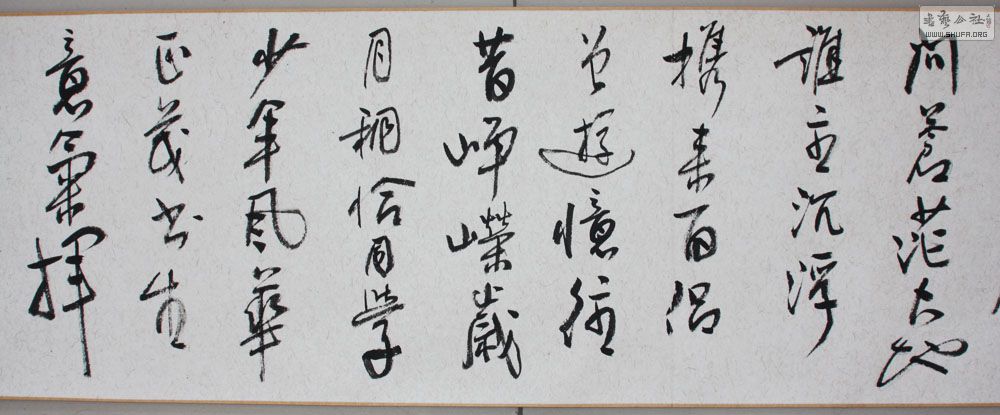 問蒼茫大地
誰主沉浮
攜來百侶
曾遊憶往
昔崢嶸歲
月稠恰同學
少年風華
正茂书生
意氣揮
書藝公社
WWW.SHUFA.ORG